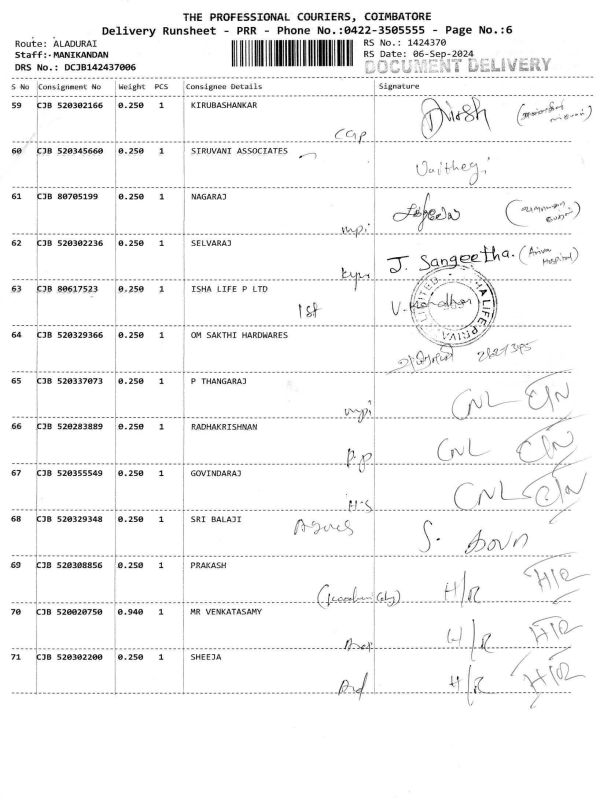 THE PROFESSIONAL COURIERS, COIMBATORE
Delivery Runsheet - PRR - Phone No.:0422-3505555 - Page No.:6
Route: ALADURAI RS No.: 1424370
Staff:-MANIKANDAN RS Date: 06-Sep-2024
DRS No.: DCJB142437006 DOCUMENT DELIVERY
S No Consignment No Weight PCS Consignee Details Signature
59 CJB 520302166 0.250 1 KIRUBASHANKAR
CGP
60 CJB 520345660 0.250 1 SIRUVANI ASSOCIATES
61 CJB 80705199 0.250 1 NAGARAJ
mpi
62 CJB 520302236 0.250 1 SELVARAJ
J. Sangeetha.
63 CJB 80617523 0.250 1 ISHA LIFE P LTD
1st
64 CJB 520329366 0.250 1 OM SAKTHI HARDWARES
65 CJB 520337073 0.250 1 P THANGARAJ
mpi CNL
66 CJB 520283889 0.250 1 RADHAKRISHNAN
CNL
67 CJB 520355549 0.250 1 GOVINDARAJ
H.S CNL
68 CJB 520329348 0.250 1 SRI BALAJI
69 CJB 520308856 0.250 1 PRAKASH
H/R H/R
70 CJB 520020750 0.940 1 MR VENKATASAMY
H/R H/R
71 CJB 520302200 0.250 1 SHEEJA
H/R H/R